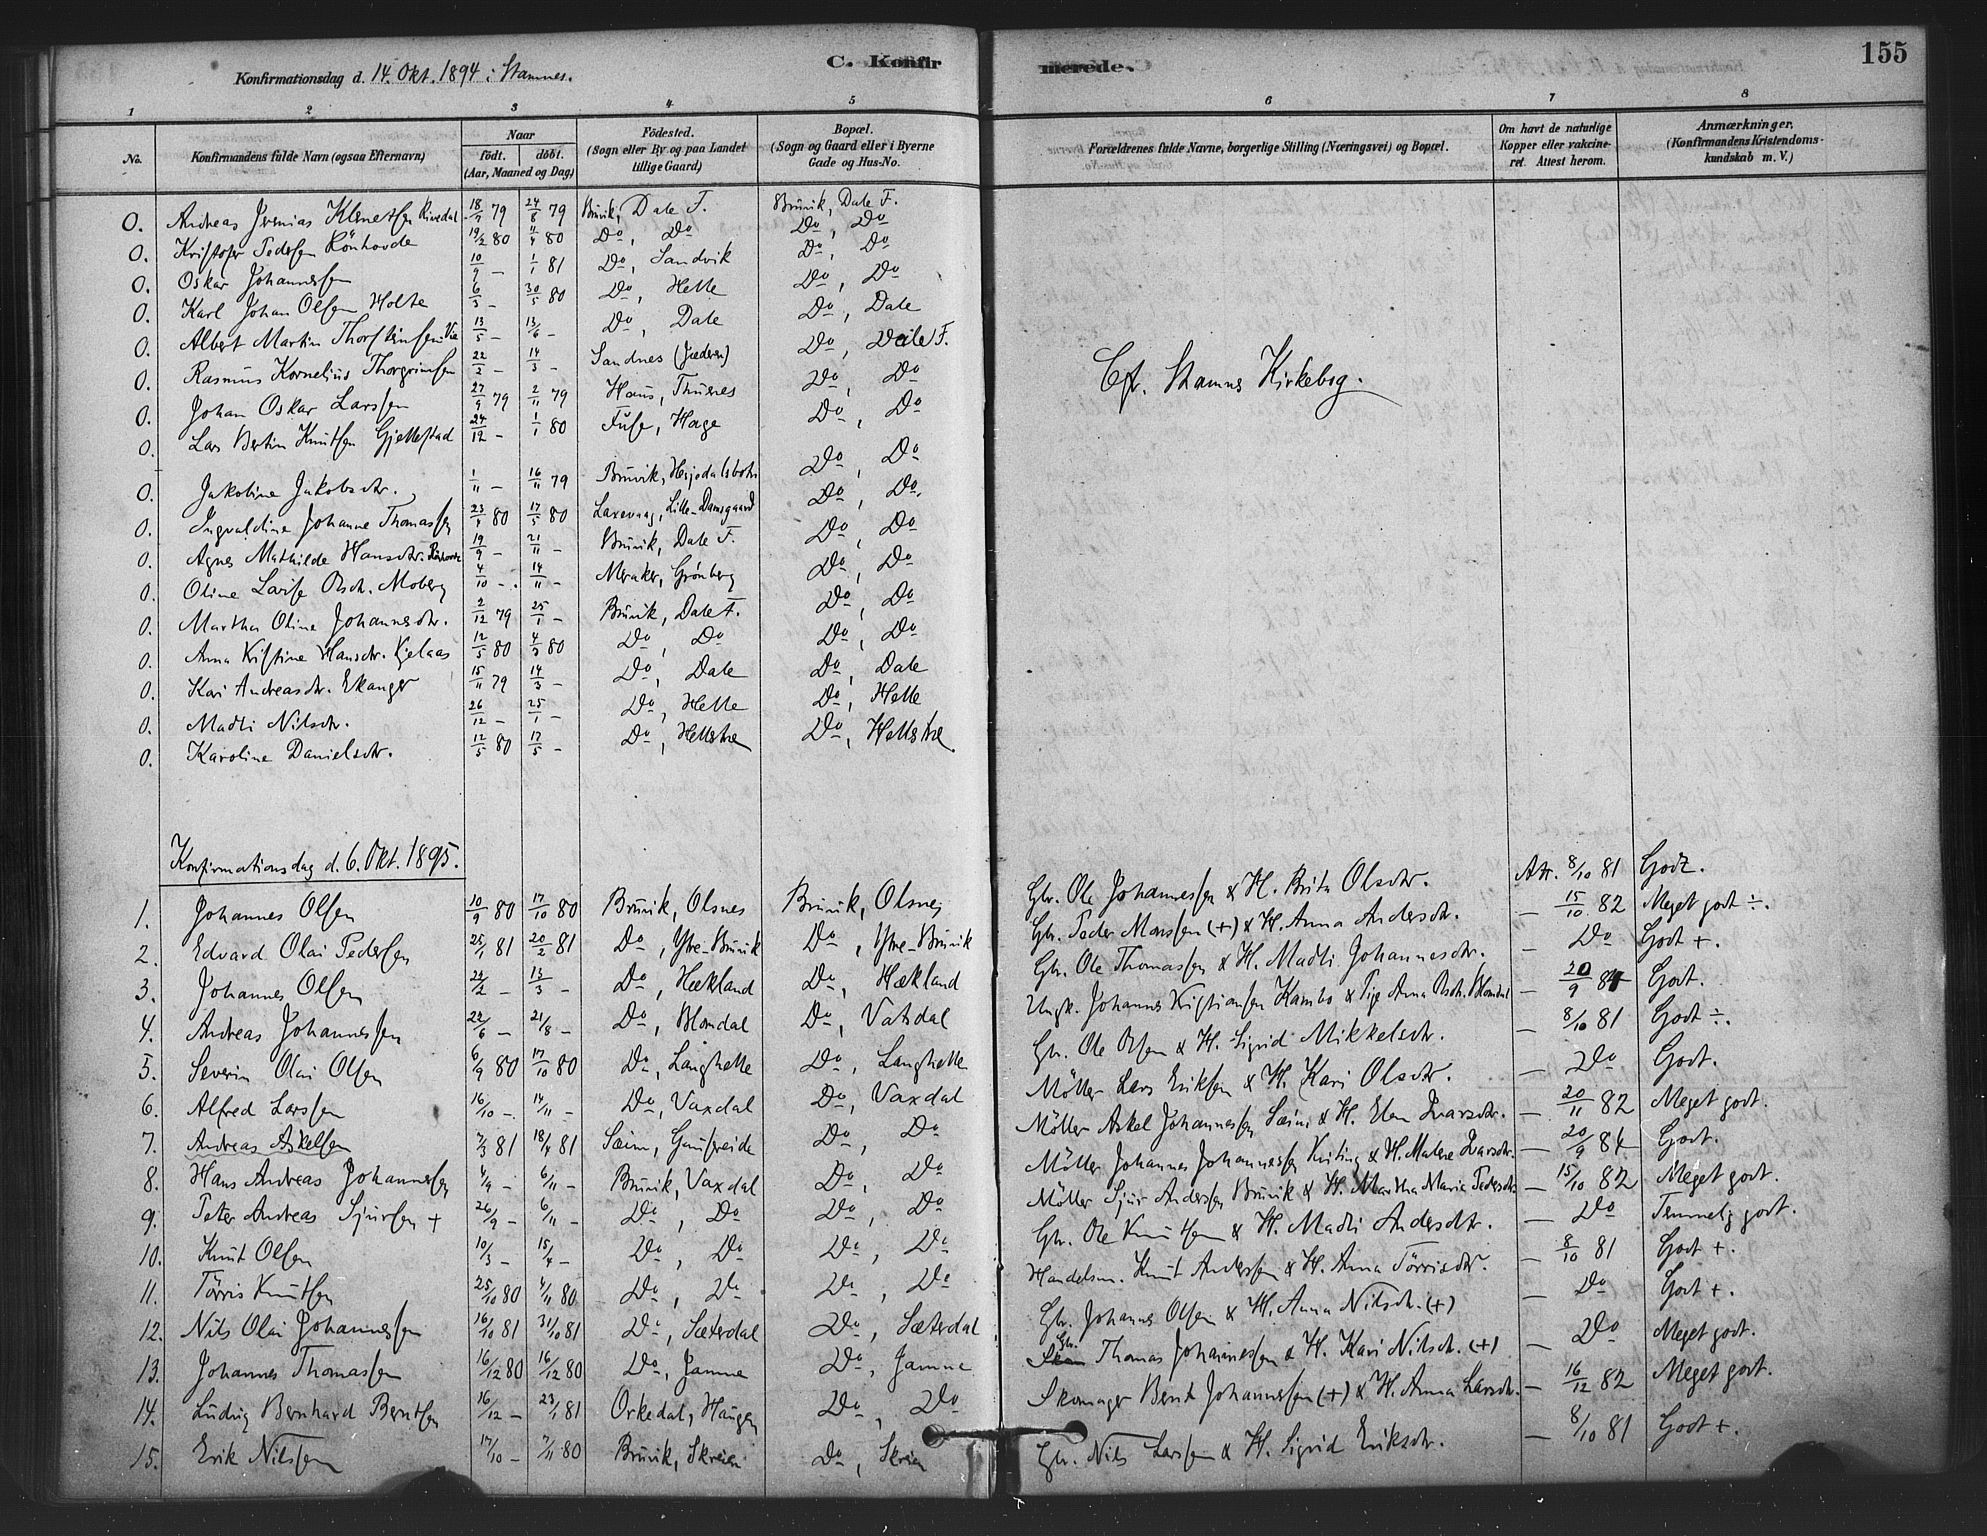 Konfirmationsdag d. 14. Okt. 1894 i Stamnes.
C. Konfirmerede.
155
1 2 3 4 5 6 7 8
No.
Konfirmandens fulde Navn (ogsaa Efternavn)
Naar
födt. döbt.
(Aar, Maaned og Dag)
Födested.
(Sogn eller By og paa Landet
tillige Gaard)
Bopæl.
(Sogn og Gaard eller i Byerne
Gade og Hus-No.
Forældrenes fulde Navne, borgerlige Stilling (Næringsvei) og Bopæl.
Om havt de naturlige
Kopper eller vakcine-
ret. Attest herom.
Anmærkninger.
(Konfirmandens Kristendoms-
kundskab m. V.)
0. Andreas Jremias Klemetsen Rivedal 18/7 79 24/8 79 Bruvik, Dale F. Bruvik, Dale F.
0. Kristofer Pedersen Rönhovde 19/2 80 4/4 80 Do, Do Do, Do
0. Oskar Johannessen 10/9 – 1/1 81 Do, Sandvik Do, Do
0. Karl Johan Olsen Holte 6/3 – 30/5 80 Do, Helle Do, Do
0. Albert Martin Thorsteinsen Vik 13/5 – 13/6 – Do, Dale Do, Dale
0. Rasmus Kornelius Thorgrimsen 22/2 – 14/3 – Sandnes (Jæderen) Do, Dale F.
0. Johan Oskar Larssen 27/9 79 2/11 79 Haus, Thunes Do, Do
0. Lars Bertin Knutsen Gjellestad 24/12 – 1/1 80 Fuse, Hage Do, Do
0. Jakobine Jakobsdtr. 1/11 – 16/11 79 Bruvik, Do, Do
0. Ingvaldine Johanne Thomassen 23/1 80 17/5 80 Laxevaag, Lille-Damsgaard Do, Do
0. Agnes Mathilde Hansdtr. 19/9 – 21/11 – Bruvik, Dale F. Do, Do
0. Oline Lovise Olsdt. Moberg 4/10 – 14/11 – Meraker, Grönberg Do, Do
0. Martha Oline Johannesdtr. 2/12 79 25/1 – Bruvik, Dale F. Do, Do
0. Anna Kristine Hansdtr. Kjelaas 12/5 80 4/3 80 Do, Do Do, Do
0. Kari Andreasdtr. Ekanger 15/11 79 14/3 – Do, Dale Do, Dale
0. Madli Nilsdtr. 26/12 – 25/1 – Do, Helle Do, Helle
0. Karoline Danielsdtr. 12/5 80 17/5 – Do, Hellstræ Do, Hellstræ
Cfr. Stamnes Kirkebog.
Konfirmationsdag d. 6. Okt. 1895.
1. Johannes Olsen 10/9 80 17/10 80 Bruvik, Olsnes Bruvik, Olsnes Gbr. Ole Johannessen & H. Brita Olsdtr. Att. 8/10 81 Godt.
2. Edvard Olai Pedersen 25/1 81 20/2 81 Do, Ytre-Bruvik Do, Ytre-Bruvik Gbr. Peder Monssen (+) & H. Anna Andersdtr. – 15/10 82 Meget godt ÷.
3. Johannes Olsen 22/2 – 13/3 – Do, Hækland Do, Hækland Gbr. Ole Thomassen & H. Madli Johannesdtr. – Do Godt +.
4. Andreas Johannessen 22/6 – 21/8 – Do, Blomdal Do, Vatsdal Ungk. Johannes Kristiansen Kambo & Pige Anna Olsdt. Blomdal – 20/9 84 Godt.
5. Severin Olai Olsen 6/9 80 17/10 80 Do, Langhelle Do, Langhelle Gbr. Ole Olsen & H. Sigrid Mikkelsdtr. – 8/10 81 Godt ÷.
6. Alfred Larssen 16/10 – 14/11 – Do, Vaxdal Do, Vaxdal Möller Lars Eriksen & H. Kari Olsdtr. – Do Godt.
7. Andreas Askelsen 7/3 81 18/4 81 Sæim, Do, Do Möller Askel Johannessen Sæim & H. Elen Ivarsdtr. – 20/11 82 Meget godt.
8. Hans Andreas Johannessen 4/9 – 6/11 – Bruvik, Vaxdal Do, Do Möller Johannes Johannessen & H. Malene Ivarsdtr. – 20/9 84 Godt.
9. Peter Andreas Sjursen + 26/9 – 6/11 – Do, Do Do, Do Möller Sjur Andersen Bruvik & H. Martha Maria Pedersdtr. – 15/10 82 Meget godt.
10. Knut Olsen 10/3 – 15/4 – Do, Do Do, Do Gbr. Ole Knutsen & H. Madli Andersdtr. – Do Temmelig godt.
11. Törris Knutsen 25/10 80 4/11 80 Do, Do Do, Do Handelsm. Knut Andersen & H. Anna Törrisdtr. – 8/10 81 Godt +.
12. Nils Olai Johannessen 16/10 81 31/10 81 Do, Sæterdal Do, Sæterdal Gbr. Johannes Olsen & H. Anna Nilsdt. (+) – Do Godt +.
13. Johannes Thomassen 16/12 80 16/12 80 Do, Jamne Do, Jamne Gbr. Thomas Johannessen & H. Kari Nilsdt. (+) – Do Meget godt.
14. Ludvig Bernhard Berntsen 16/12 – 23/1 81 Orkedal, Haugen Do, Do Skomager Bernt Johannessen (+) & H. Anna Larsdt. – 16/12 82 Meget godt.
15. Erik Nilssen 17/10 – 7/11 80 Bruvik, Skreien Do, Skreien Gbr. Nils Larssen & H. Sigrid Eriksdtr. – 8/10 81 Godt +.